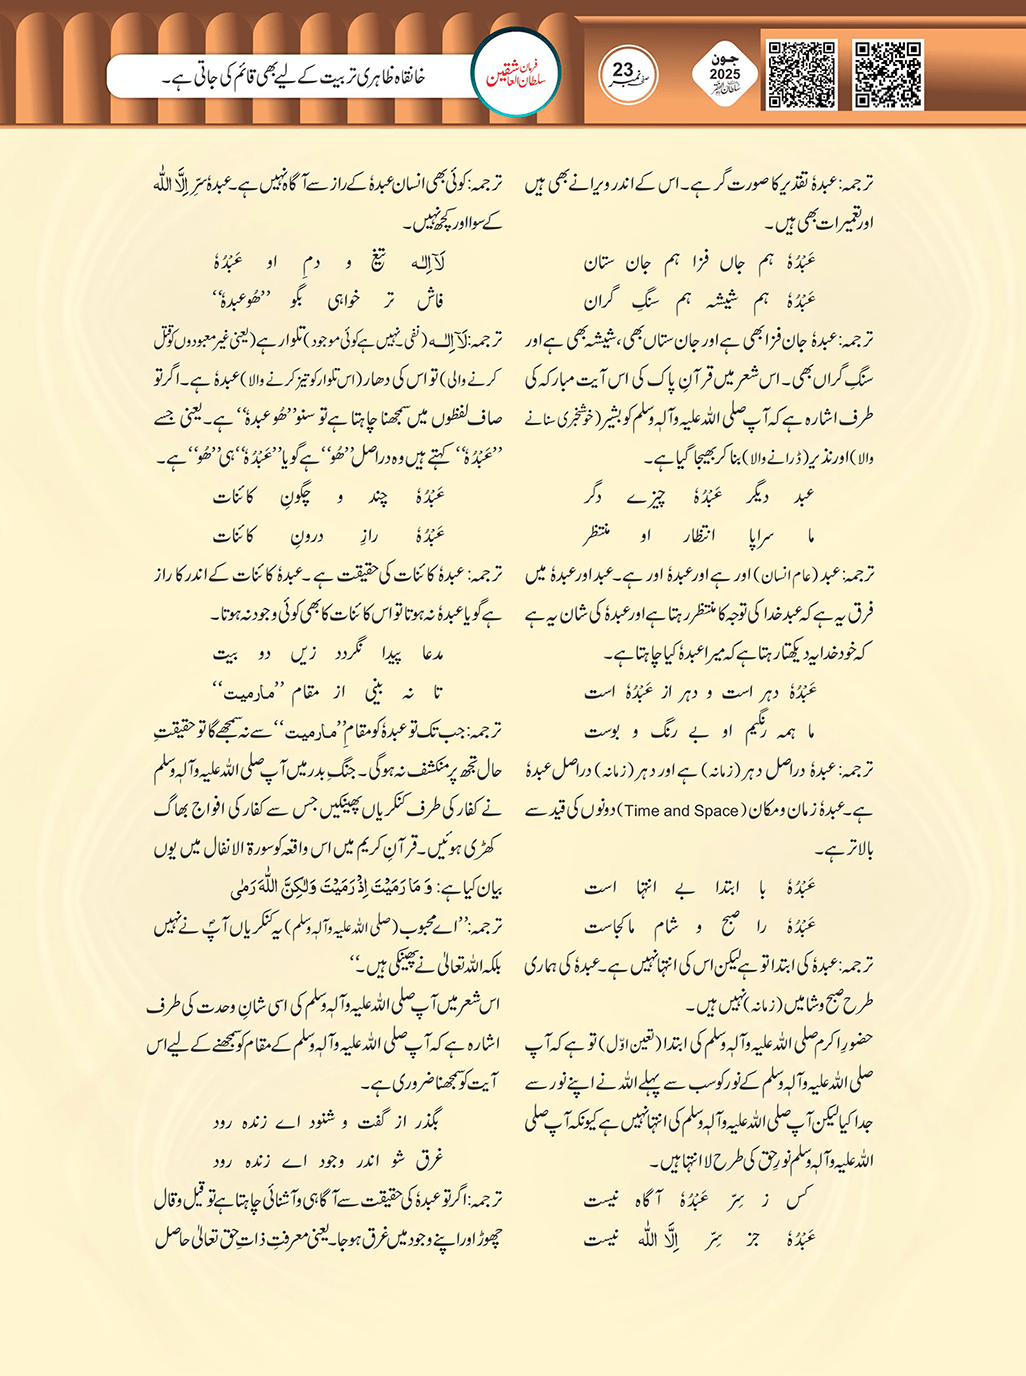 خانقاہ ظاہری تربیت کے لیے بھی قائم کی جاتی ہے۔
فرمان
سلطان العاشقین
صفحہ نمبر 23
جون
2025
ترجمہ: عبدہٗ تقدیر کا صورت گر ہے۔ اس کے اندر ویرانے بھی ہیں
اور تعمیرات بھی ہیں۔
عَبْدُہٗ ہم جاں فزا ہم جان ستان
عَبْدُہٗ ہم شیشہ ہم سنگِ گران
ترجمہ: عبدہٗ جان فزا بھی ہے اور جان ستاں بھی، شیشہ بھی ہے اور
سنگِ گراں بھی۔ اس شعر میں قرآنِ پاک کی اس آیت مبارکہ کی
طرف اشارہ ہے کہ آپ صلی اللہ علیہ وآلہٖ وسلم کو بشیر (خوشخبری سنانے
والا) اور نذیر (ڈرانے والا) بنا کر بھیجا گیا ہے۔
عبد دیگر عَبْدُہٗ چیزے دگر
ما سراپا انتظار او منتظر
ترجمہ: عبد (عام انسان) اور ہے اور عبدہٗ اور ہے۔ عبد اور عبدہٗ میں
فرق یہ ہے کہ عبد خدا کی توجہ کا منتظر رہتا ہے اور عبدہٗ کی شان یہ ہے
کہ خود خدا یہ دیکھتا رہتا ہے کہ میرا عبدہٗ کیا چاہتا ہے۔
عَبْدُہٗ دہر است و دہر از عَبْدُہٗ است
ما ہمہ رنگیم او بے رنگ و بوست
ترجمہ: عبدہٗ دراصل دہر (زمانہ) ہے اور دہر (زمانہ) دراصل عبدہٗ
ہے۔ عبدہٗ زمان و مکان (Time and Space) دونوں کی قید سے
بالاتر ہے۔
عَبْدُہٗ با ابتدا بے انتہا است
عَبْدُہٗ را صبح و شام ما کجاست
ترجمہ: عبدہٗ کی ابتدا تو ہے لیکن اس کی انتہا نہیں ہے۔ عبدہٗ کی ہماری
طرح صبح و شامیں (زمانہ) نہیں ہیں۔
حضورِ اکرم صلی اللہ علیہ وآلہٖ وسلم کی ابتدا (تعین اوّل) تو ہے کہ آپ
صلی اللہ علیہ وآلہٖ وسلم کے نور کو سب سے پہلے اللہ نے اپنے نور سے
جدا کیا لیکن آپ صلی اللہ علیہ وآلہٖ وسلم کی انتہا نہیں ہے کیونکہ آپ صلی
اللہ علیہ وآلہٖ وسلم نورِ حق کی طرح لا انتہا ہیں۔
کس ز سِرِّ عَبْدُہٗ آگاہ نیست
عَبْدُہٗ جز سِرِّ اِلَّا اللّٰہ نیست
ترجمہ: کوئی بھی انسان عبدہٗ کے راز سے آگاہ نہیں ہے۔ عبدہٗ سِرِّ اِلَّا اللّٰہ
کے سوا اور کچھ نہیں۔
لَآ اِلٰہ تیغ و دمِ او عَبْدُہٗ
فاش تر خواہی بگو ’’ھُو عبدہٗ‘‘
ترجمہ: لَآ اِلٰہ (نفی۔ نہیں ہے کوئی موجود) تلوار ہے (یعنی غیر معبودوں کو قتل
کرنے والی) تو اس کی دھار (اس تلوار کو تیز کرنے والا) عبدہٗ ہے۔ اگر تو
صاف لفظوں میں سمجھنا چاہتا ہے تو سنو ’’ھُو عبدہٗ‘‘ ہے۔ یعنی جسے
’’عَبْدُہٗ‘‘ کہتے ہیں وہ دراصل ’’ھُو‘‘ ہے گویا ’’عَبْدُہٗ‘‘ ہی ’’ھُو‘‘ ہے۔
عَبْدُہٗ چند و چگونِ کائنات
عَبْدُہٗ رازِ درونِ کائنات
ترجمہ: عبدہٗ کائنات کی حقیقت ہے۔ عبدہٗ کائنات کے اندر کا راز
ہے گویا عبدہٗ نہ ہوتا تو اس کائنات کا بھی کوئی وجود نہ ہوتا۔
مدعا پیدا نگردد زیں دو بیت
تا نہ بینی از مقام ’’مارمیت‘‘
ترجمہ: جب تک تو عبدہٗ کو مقامِ ’’مارمیت‘‘ سے نہ سمجھے گا تو حقیقتِ
حال تجھ پر منکشف نہ ہوگی۔ جنگِ بدر میں آپ صلی اللہ علیہ وآلہٖ وسلم
نے کفار کی طرف کنکریاں پھینکیں جس سے کفار کی افواج بھاگ
کھڑی ہوئیں۔ قرآنِ کریم میں اس واقعہ کو سورۃ الانفال میں یوں
بیان کیا ہے: وَمَا رَمَیْتَ اِذْ رَمَیْتَ وَلٰکِنَّ اللّٰہَ رَمٰی
ترجمہ: ’’اے محبوب (صلی اللہ علیہ وآلہٖ وسلم) یہ کنکریاں آپؐ نے نہیں
بلکہ اللہ تعالیٰ نے پھینکی ہیں۔‘‘
اس شعر میں آپ صلی اللہ علیہ وآلہٖ وسلم کی اسی شانِ وحدت کی طرف
اشارہ ہے کہ آپ صلی اللہ علیہ وآلہٖ وسلم کے مقام کو سمجھنے کے لیے اس
آیت کو سمجھنا ضروری ہے۔
بگذر از گفت و شنود اے زندہ رود
غرق شو اندر وجود اے زندہ رود
ترجمہ: اگر تو عبدہٗ کی حقیقت سے آگاہی و آشنائی چاہتا ہے تو قیل و قال
چھوڑ اور اپنے وجود میں غرق ہو جا۔ یعنی معرفتِ ذاتِ حق تعالیٰ حاصل